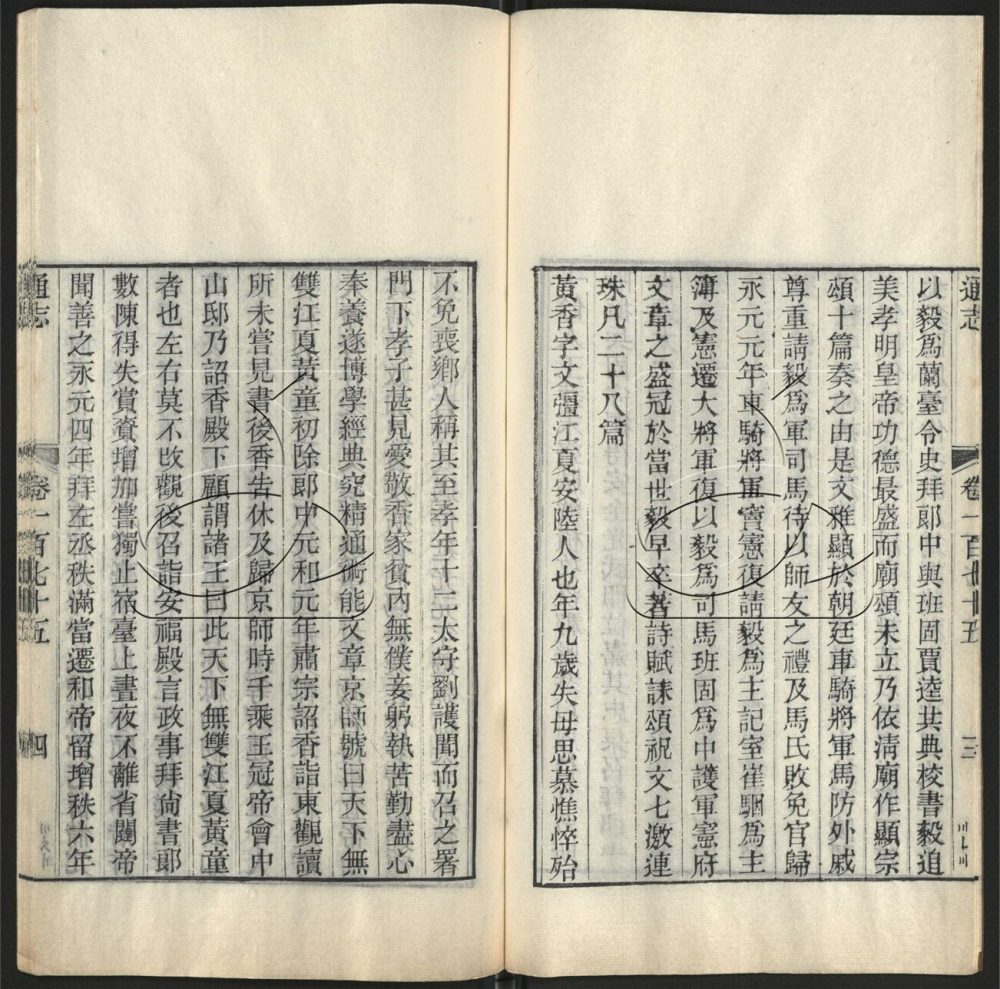 通志
卷一百七十五
三
以毅爲蘭臺令史拜郞中與班固賈逵共典校書毅追
美孝明皇帝功德最盛而廟頌未立乃依淸廟作顯宗
頌十篇奏之由是文雅顯於朝廷車騎將軍馬防外戚
尊重請毅爲軍司馬待以師友之禮及馬氏敗免官歸
永元元年車騎將軍竇憲復請毅爲主記室崔駰爲主
簿及憲遷大將軍復以毅爲司馬班固爲中護軍憲府
文章之盛冠於當世毅早卒著詩賦誄頌祝文七激連
珠凡二十八篇
黃香字文彊江夏安陸人也年九歲失母思慕憔悴殆
不免喪鄉人稱其至孝年十二太守劉護聞而召之署
門下孝子甚見愛敬香家貧內無僕妾躬執苦勤盡心
奉養遂博學經典究精通術能文章京師號曰天下無
雙江夏黃童初除郞中元和元年肅宗詔香詣東觀讀
所未嘗見書後香告休及歸京師時千乘王冠帝會中
山邸乃詔香殿下顧謂諸王曰此天下無雙江夏黃童
者也左右莫不改觀後召詣安福殿言政事拜尙書郞
數陳得失賞賚增加嘗獨止宿臺上晝夜不離省闥帝
聞善之永元四年拜左丞秩滿當遷和帝留增秩六年
通志
卷一百七十五
四